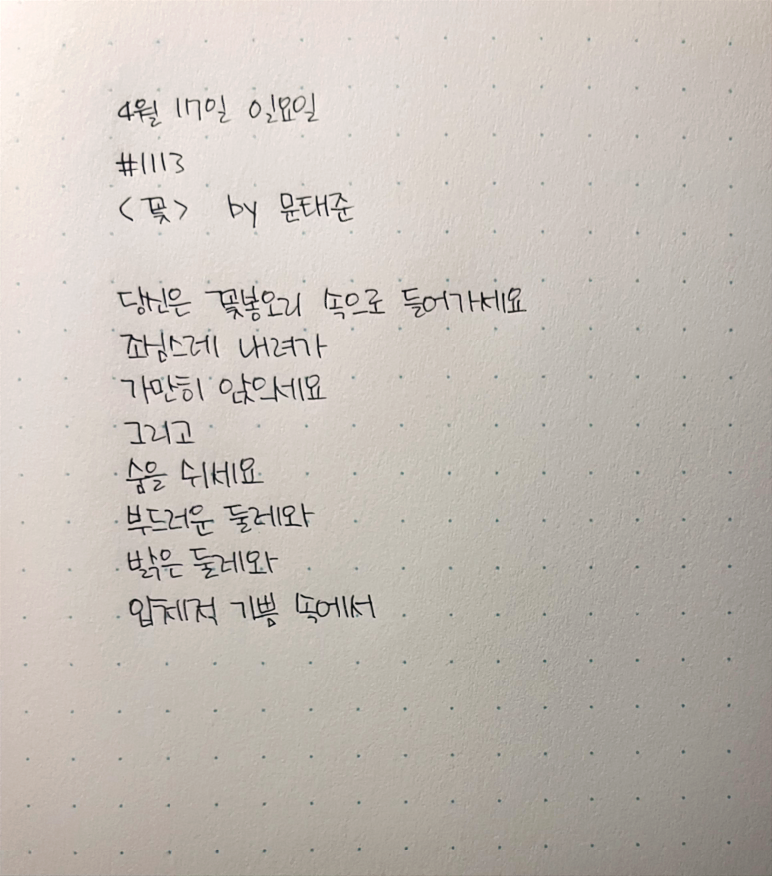 4월 17일 일요일
#1113
<꽃> by 문태준
당신은 꽃봉오리 속으로 들어가세요
조심스레 내려가
가만히 앉으세요
그리고
숨을 쉬세요
부드러운 둘레와
밝은 둘레와
입체적 기쁨 속에서